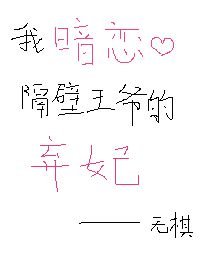 我暗恋♡
隔壁王爷的
弃妃
——无棋